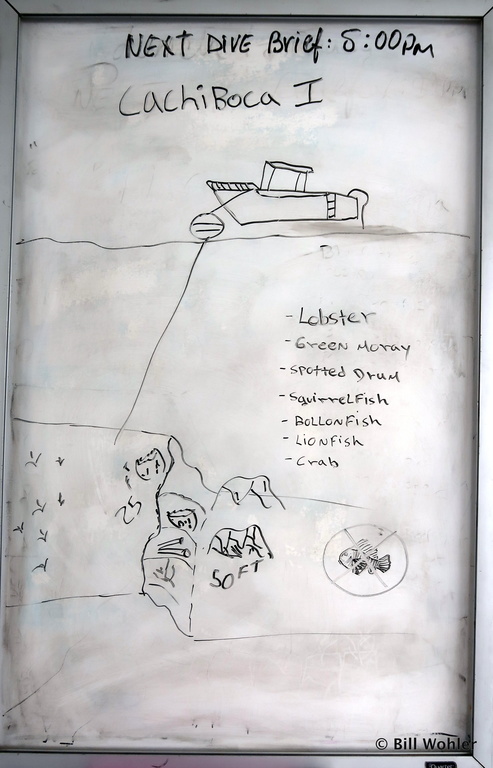 NEXT DIVE Brief: 5:00pm
CachiBoca I
- Lobster
- Green Moray
- Spotted Drum
- SquirrelFish
- BollonFish
- LionFish
- Crab
25
50FT
© Bill Wohler